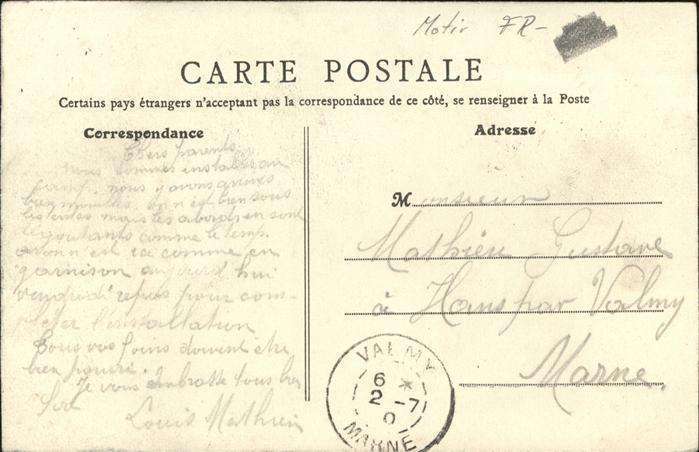 Motir FR-
CARTE POSTALE
Certains pays étrangers n'acceptant pas la correspondance de ce côté, se renseigner à la Poste
Correspondance
Adresse
Chers parents,
nous sommes installés au
camp. nous y avons
bien on est bien sous
les tentes mais les abords en sont
dégoutants comme le temps.
on est ici comme en
garnison aujourd'hui
vendredi repos pour com-
pléter l'installation
Tous vos foins doivent être
bien
Je vous embrasse tous bien
Louis Mathieu
Monsieur
Mathieu Gustave
à Hans par Valmy
Marne.
VALMY
6 *
2 -7
0
MARNE